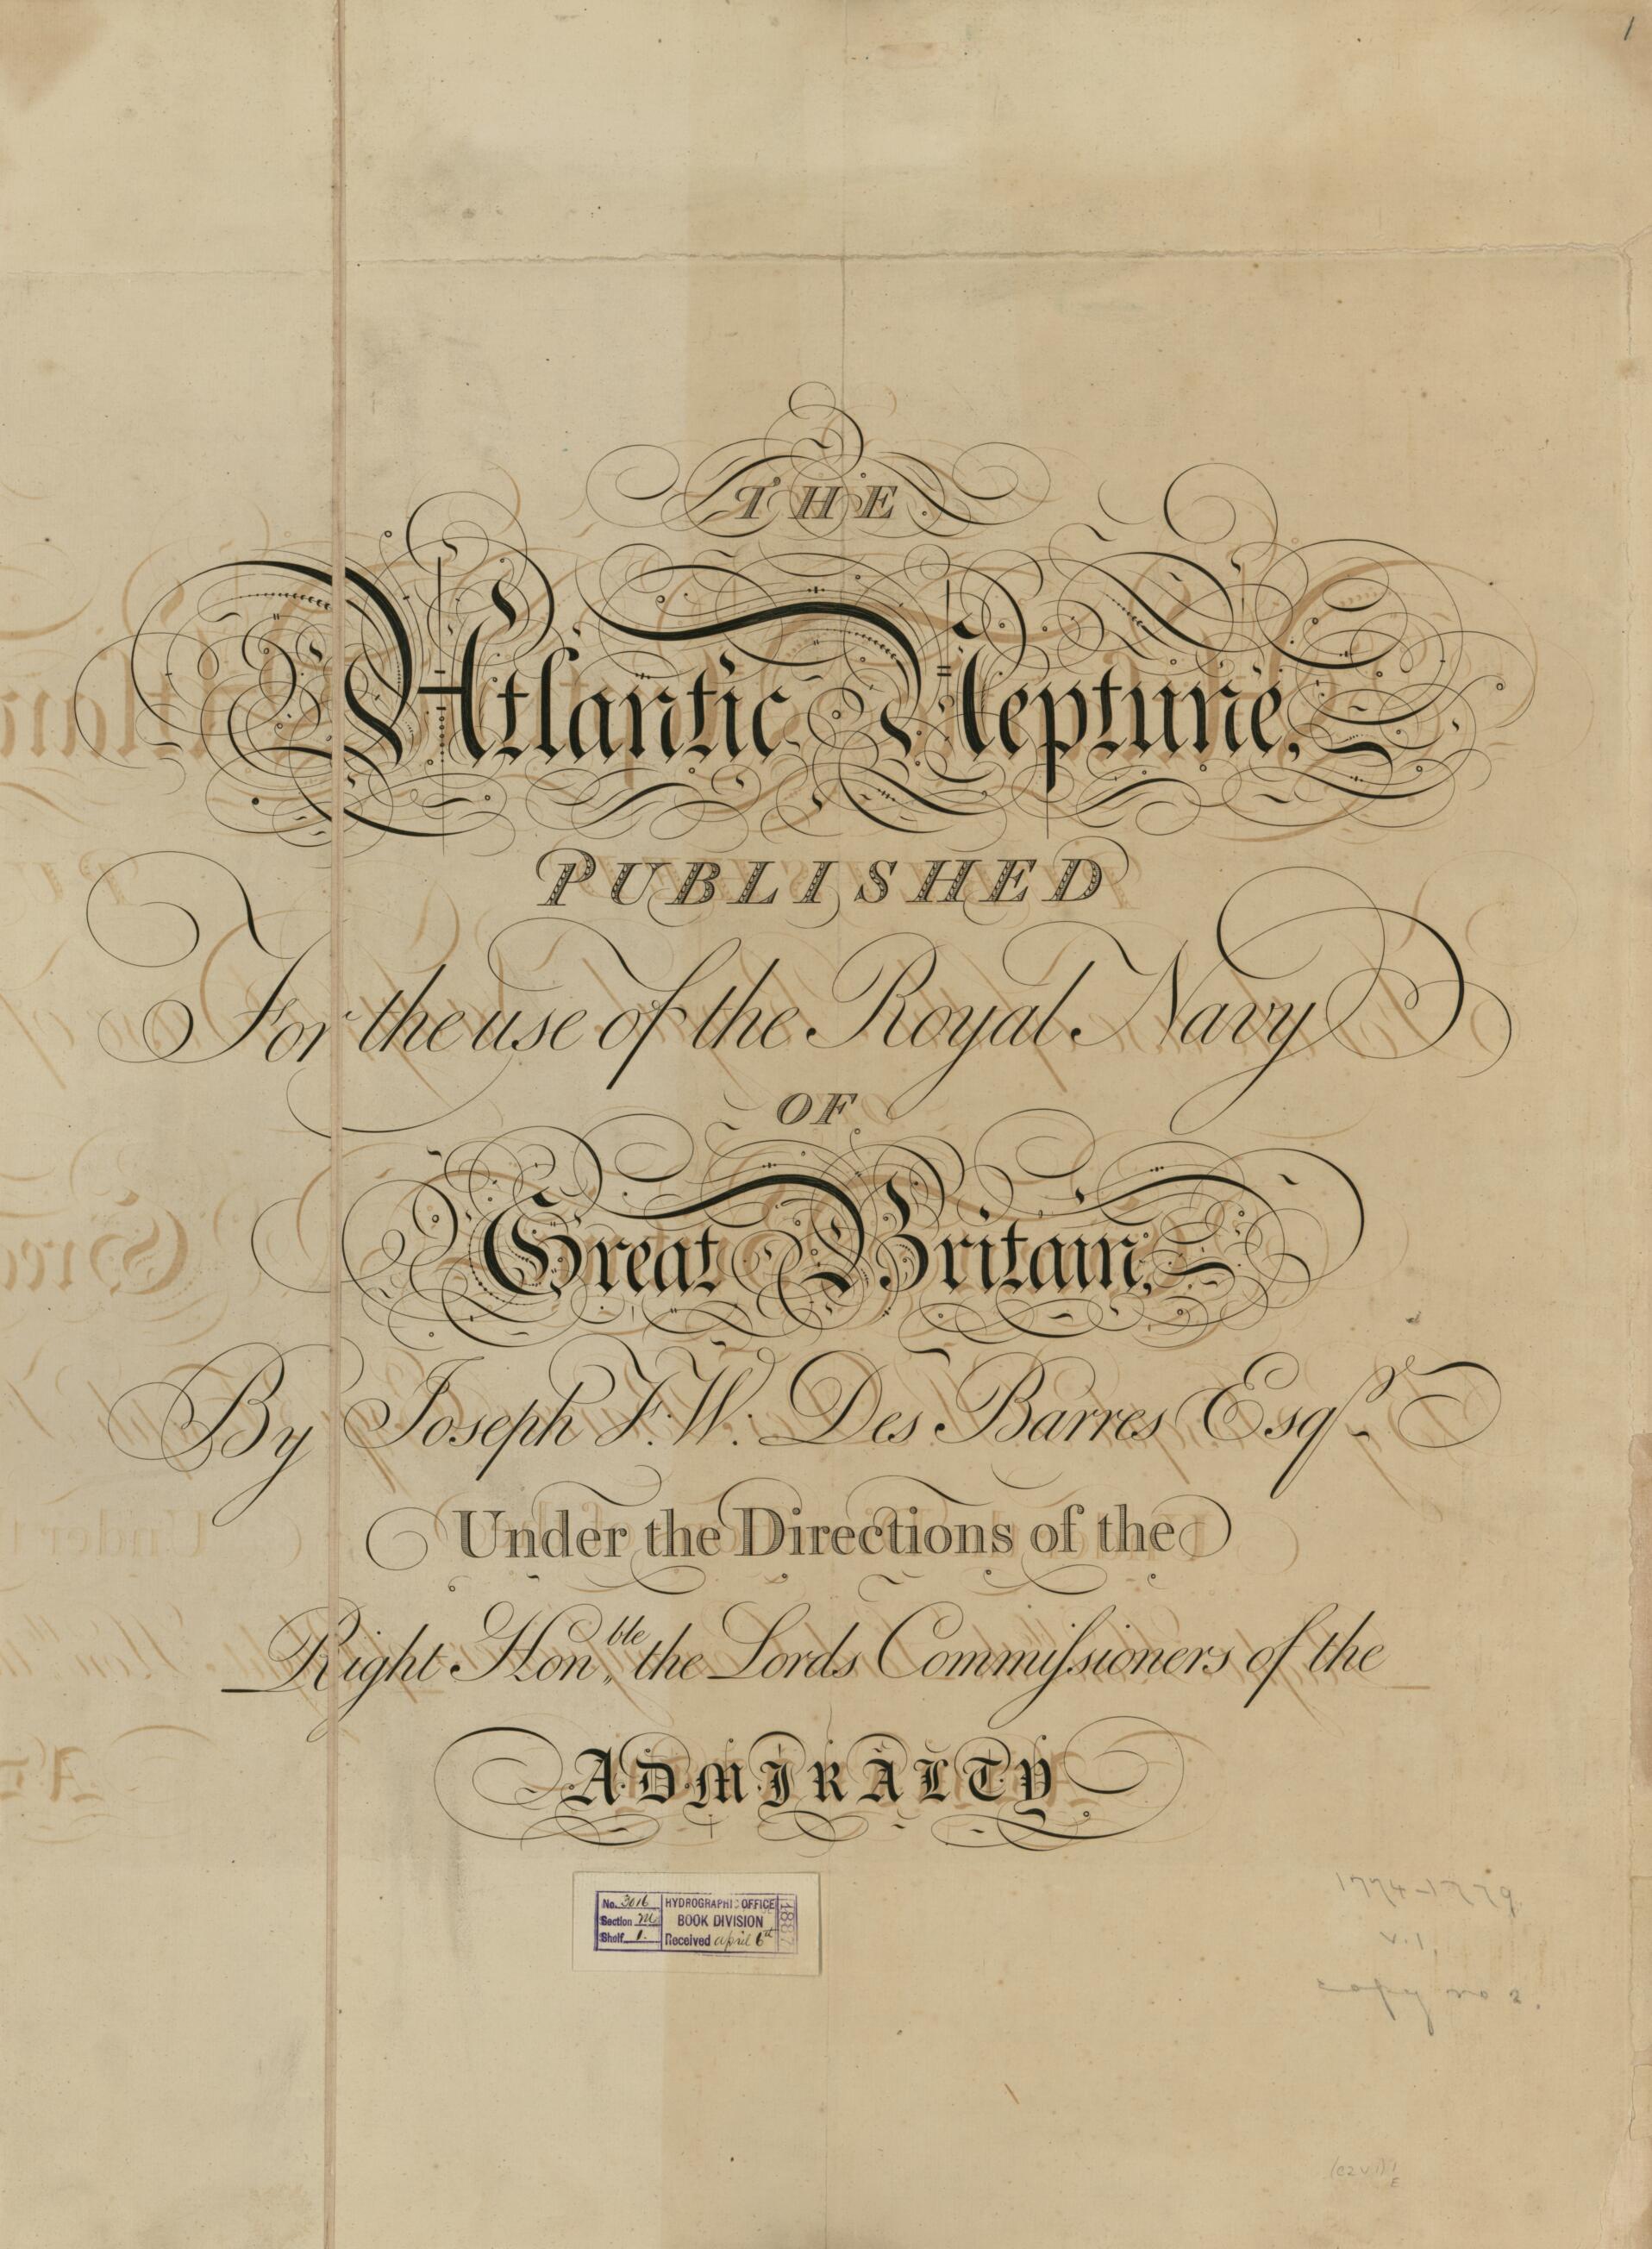 1
THE
Atlantic Neptune,
PUBLISHED
For the use of the Royal Navy
OF
Great Britain,
By Joseph F. W. Des Barres Esqr.
Under the Directions of the
Right Honble. the Lords Commiſsioners of the
ADMIRALTY
No. 3016
Section M
Shelf 1.
HYDROGRAPHIC OFFICE
BOOK DIVISION
Received april 6th
1887
1774-1779.
v.1,
copy no 2.